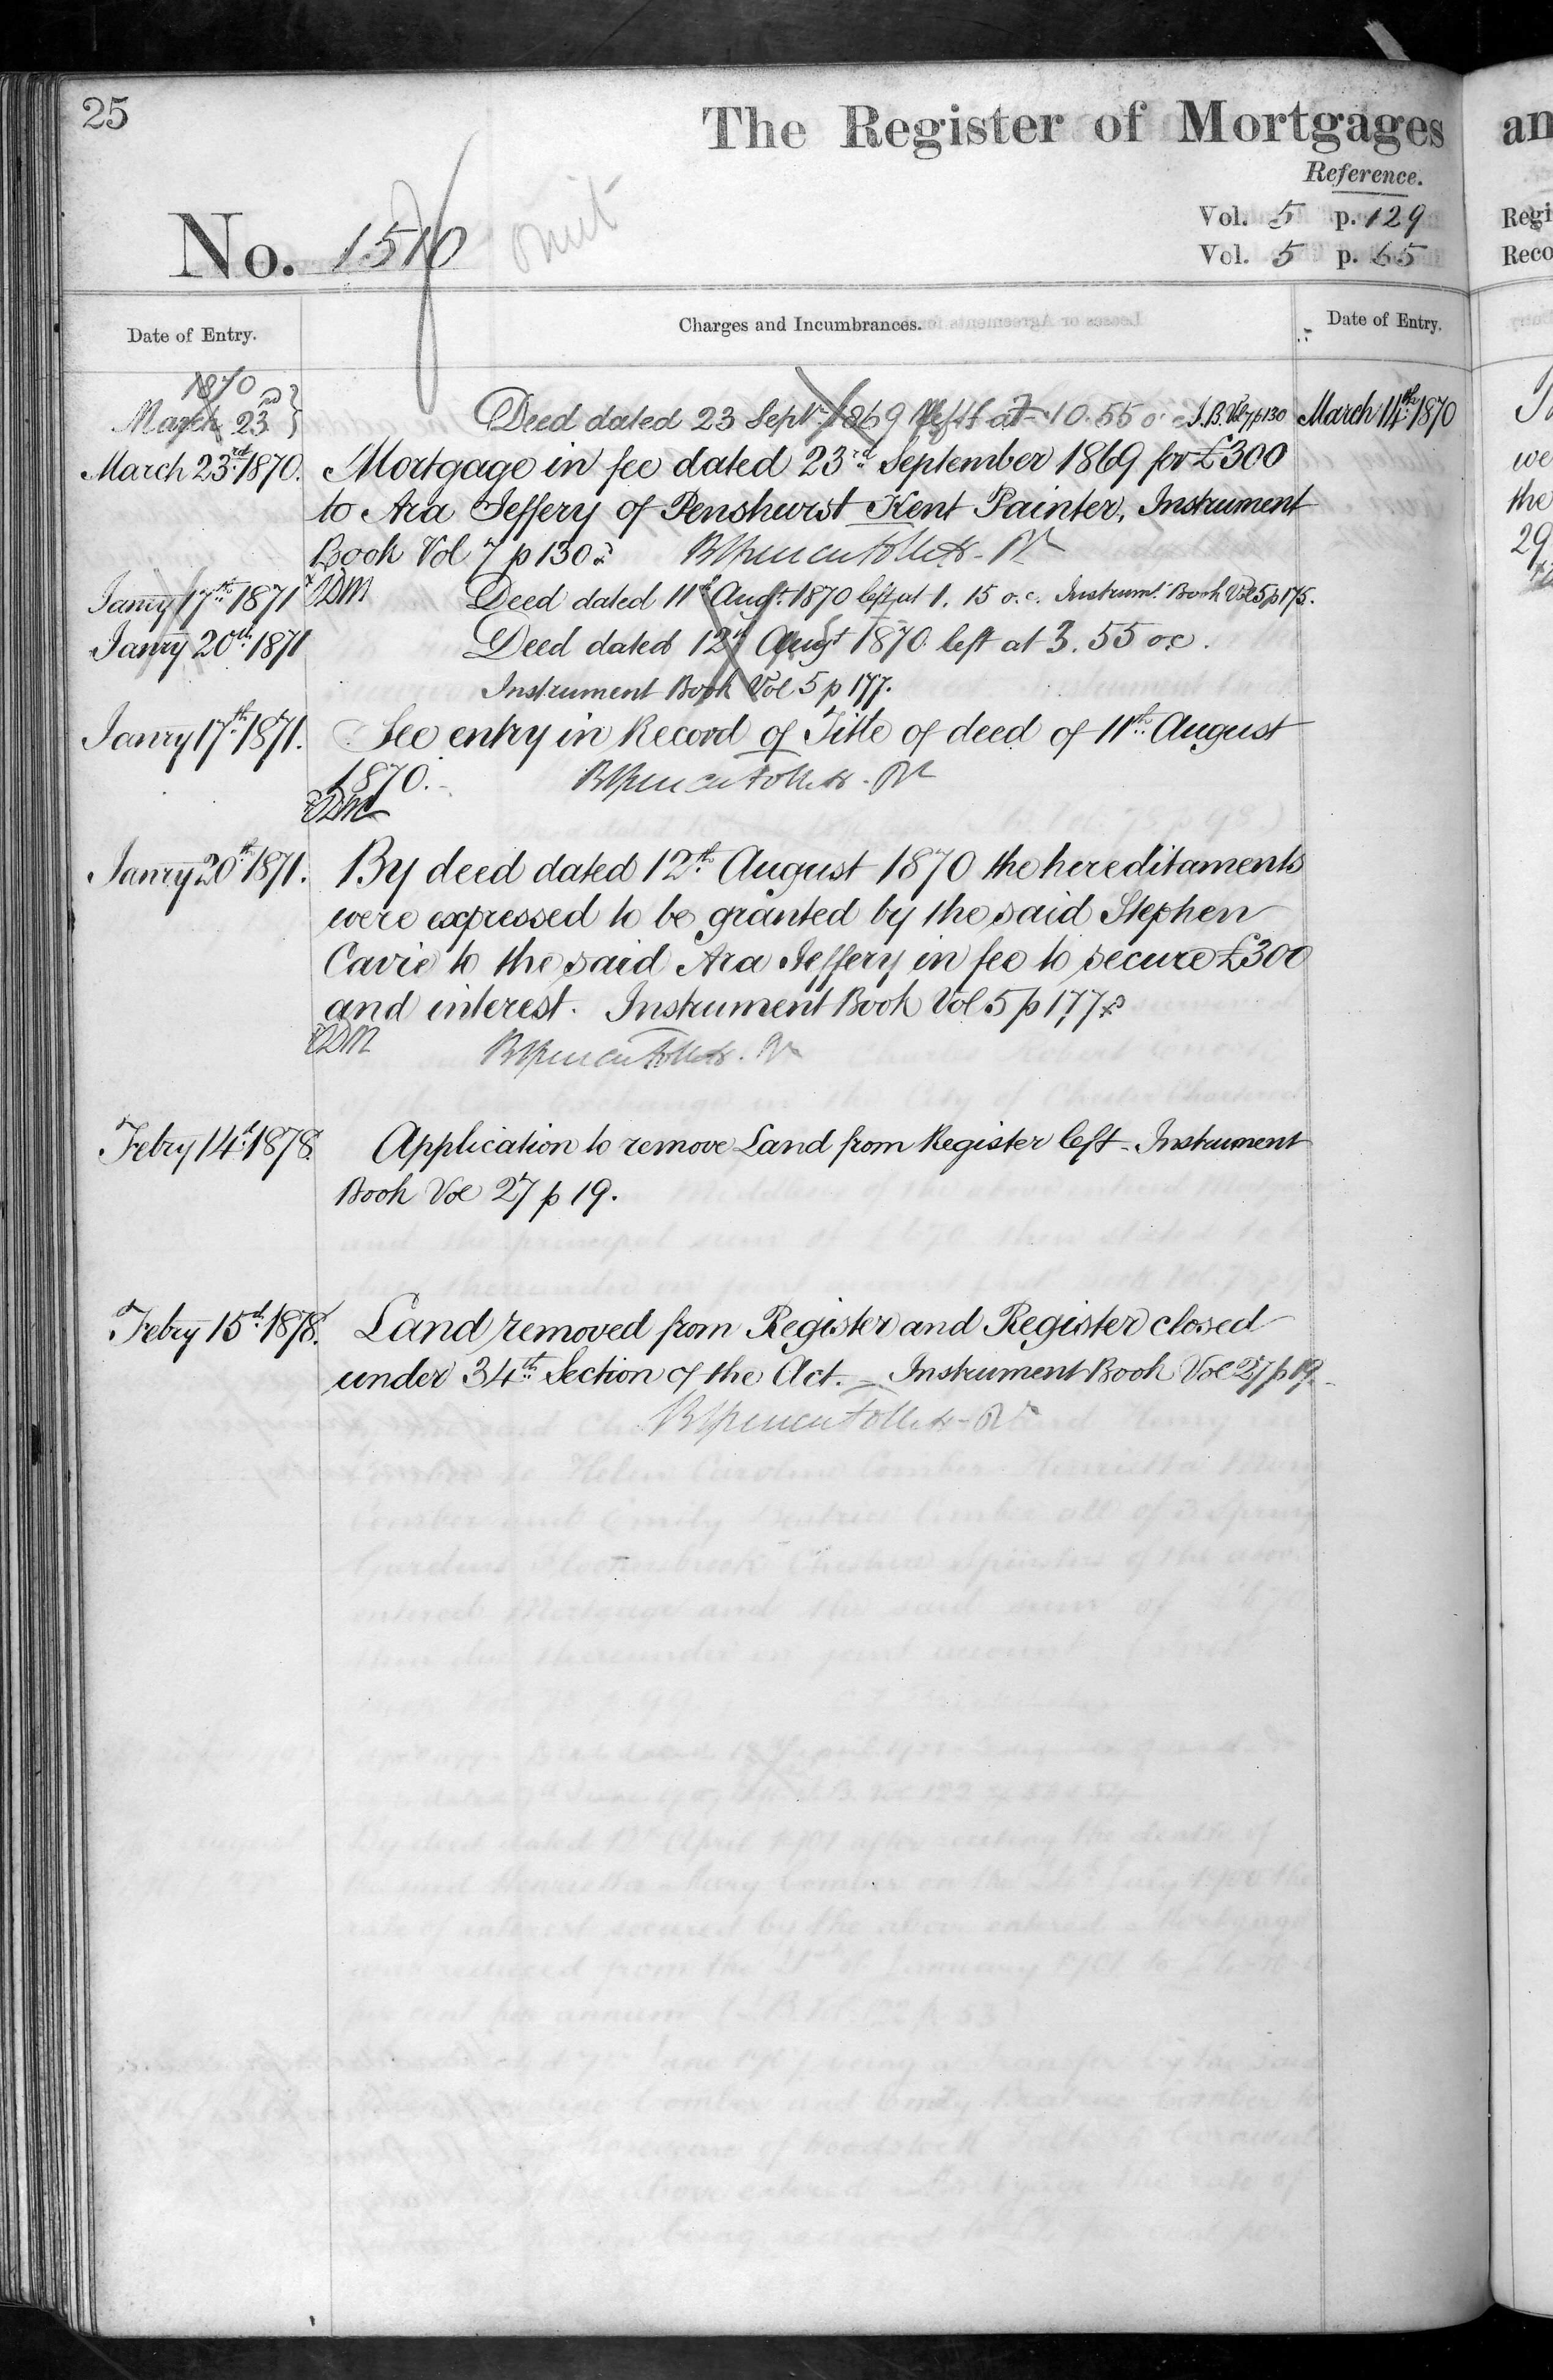 25
The Register of Mortgages
Reference.
No. 1510
omit
Vol. 5 p. 129
Vol. 5 p. 65
Date of Entry.
Charges and Incumbrances.
Date of Entry.
1870
March 23rd
Deed dated 23 Septr. 1869 left at 10.55 o'c I.B. Vol 7 p 130
March 14th 1870
March 23rd 1870. Mortgage in fee dated 23rd September 1869 for £300
to Ara Jeffery of Penshurst Kent Painter, Instrument
Book Vol 7 p 130
Janry 17th 1871 Deed dated 11th Augt. 1870 left at 1. 15 o.c. Instrumt. Book Vol 5 p 175.
Janry 20th 1871 Deed dated 12th Augst 1870 left at 3. 55 o.c.
Instrument Book Vol 5 p 177.
Janry 17th 1871. See entry in Record of Title of deed of 11th August
1870.
Janry 20th 1871. By deed dated 12th August 1870 the hereditaments
were expressed to be granted by the said Stephen
Cavie to the said Ara Jeffery in fee to secure £300
and interest. Instrument Book Vol 5 p 177
Febry 14th 1878. Application to remove Land from Register left - Instrument
Book Vol 27 p 19.
Febry 15th 1878. Land removed from Register and Register closed
under 34th Section of the Act. - Instrument Book Vol 27 p 19.
an
Regi
Reco
we
the
29